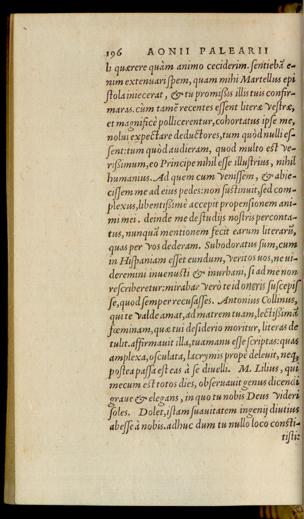 196 AONII PALEARII
li quærere quàm animo ceciderim. sentiebã e-
nim extenuari spem, quam mihi Martellus epi
stola iniecerat, & tu promißis illis tuis confir-
maras. cùm tamẽ recentes essent literæ vestræ,
et magnificè pollicerentur, cohortatus ipse me,
nolui expectare deductores, tum quòd nulli es-
sent: tum quòd audieram, quod multo est ve-
rißimum, eo Principe nihil esse illustrius, nihil
humanius. Ad quem cum venissem, & abie-
cissem me ad eius pedes: non sustinuit, sed com-
plexus, libentißimè accepit propensionem ani-
mi mei. deinde me de studijs nostris percontа-
tus, nunquã mentionem fecit earum literarũ,
quas per vos dederam. Subodoratus sum, cum
in Hispaniam esset eundum, veritos uos, ne ui-
deremini inuenusti & inurbani, si ad me non
rescriberetur: mirabar verò te id oneris suscepis
se, quod semper recusasses. Antonius Collinus,
qui te valde amat, ad matrem tuam, lectißimã
fœminam, quæ tui desiderio moritur, literas de
tulit. affirmauit illa, tua manu esse scriptas: quas
amplexa, osculata, lacrymis propè deleuit, neq;
postea passa est eas à se diuelli. M. Lilius, qui
mecum est totos dies, obseruauit genus dicendi
graue & elegans, in quo tu nobis Deus videri
soles. Dolet, istam suauitatem ingenij diutius
abesse à nobis. adhuc dum tu nullo loco consti-
tisti: